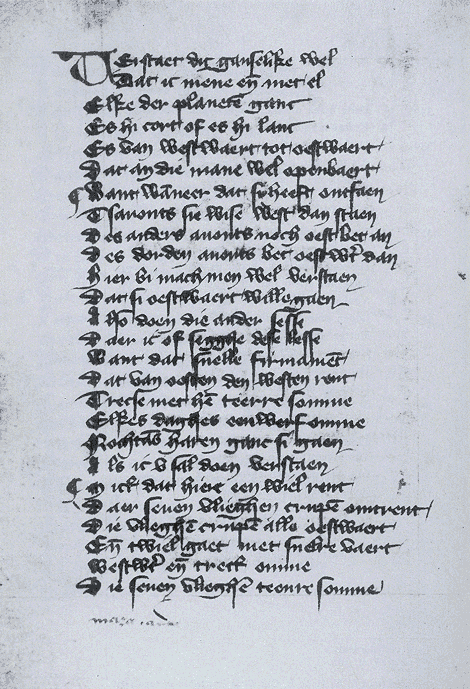 Verstaet dit ganselike wel
Dat ic mene en̄ niet el
Elke der planetē ganc
Es hi cort of es hi lanc
Es van westwaert tot oestwaert
Dat an die mane wel openbaert
Want wāneer dat si heeft ontfaen
Tsauonts sie wise west dan staen
Des anders auonts noch oest bet an
Des dorden auonts bet oestwt̄ dan
Hier bi mach men wel verstaen
Dat si oestwaert wille gaen
Also doen die ander sesse
Daer ic of segghe dese lesse
Want dat snelle firmamēt
Dat van oosten den westen rent
Trecse met hē teerre somme
Elkes daghes eenwerf omme
Nochtās haren ganc si gaen
Als ic v sal doen verstaen
Mick dat hier een wiel rent
Daer seuen vlieghen crupē omtrent
Die vlieghē crupē alle oestwaert
En̄ twiel gaet met snelre vaert
Westwt̄ en̄ treck omme
Die seuen vlieghē teenre somme